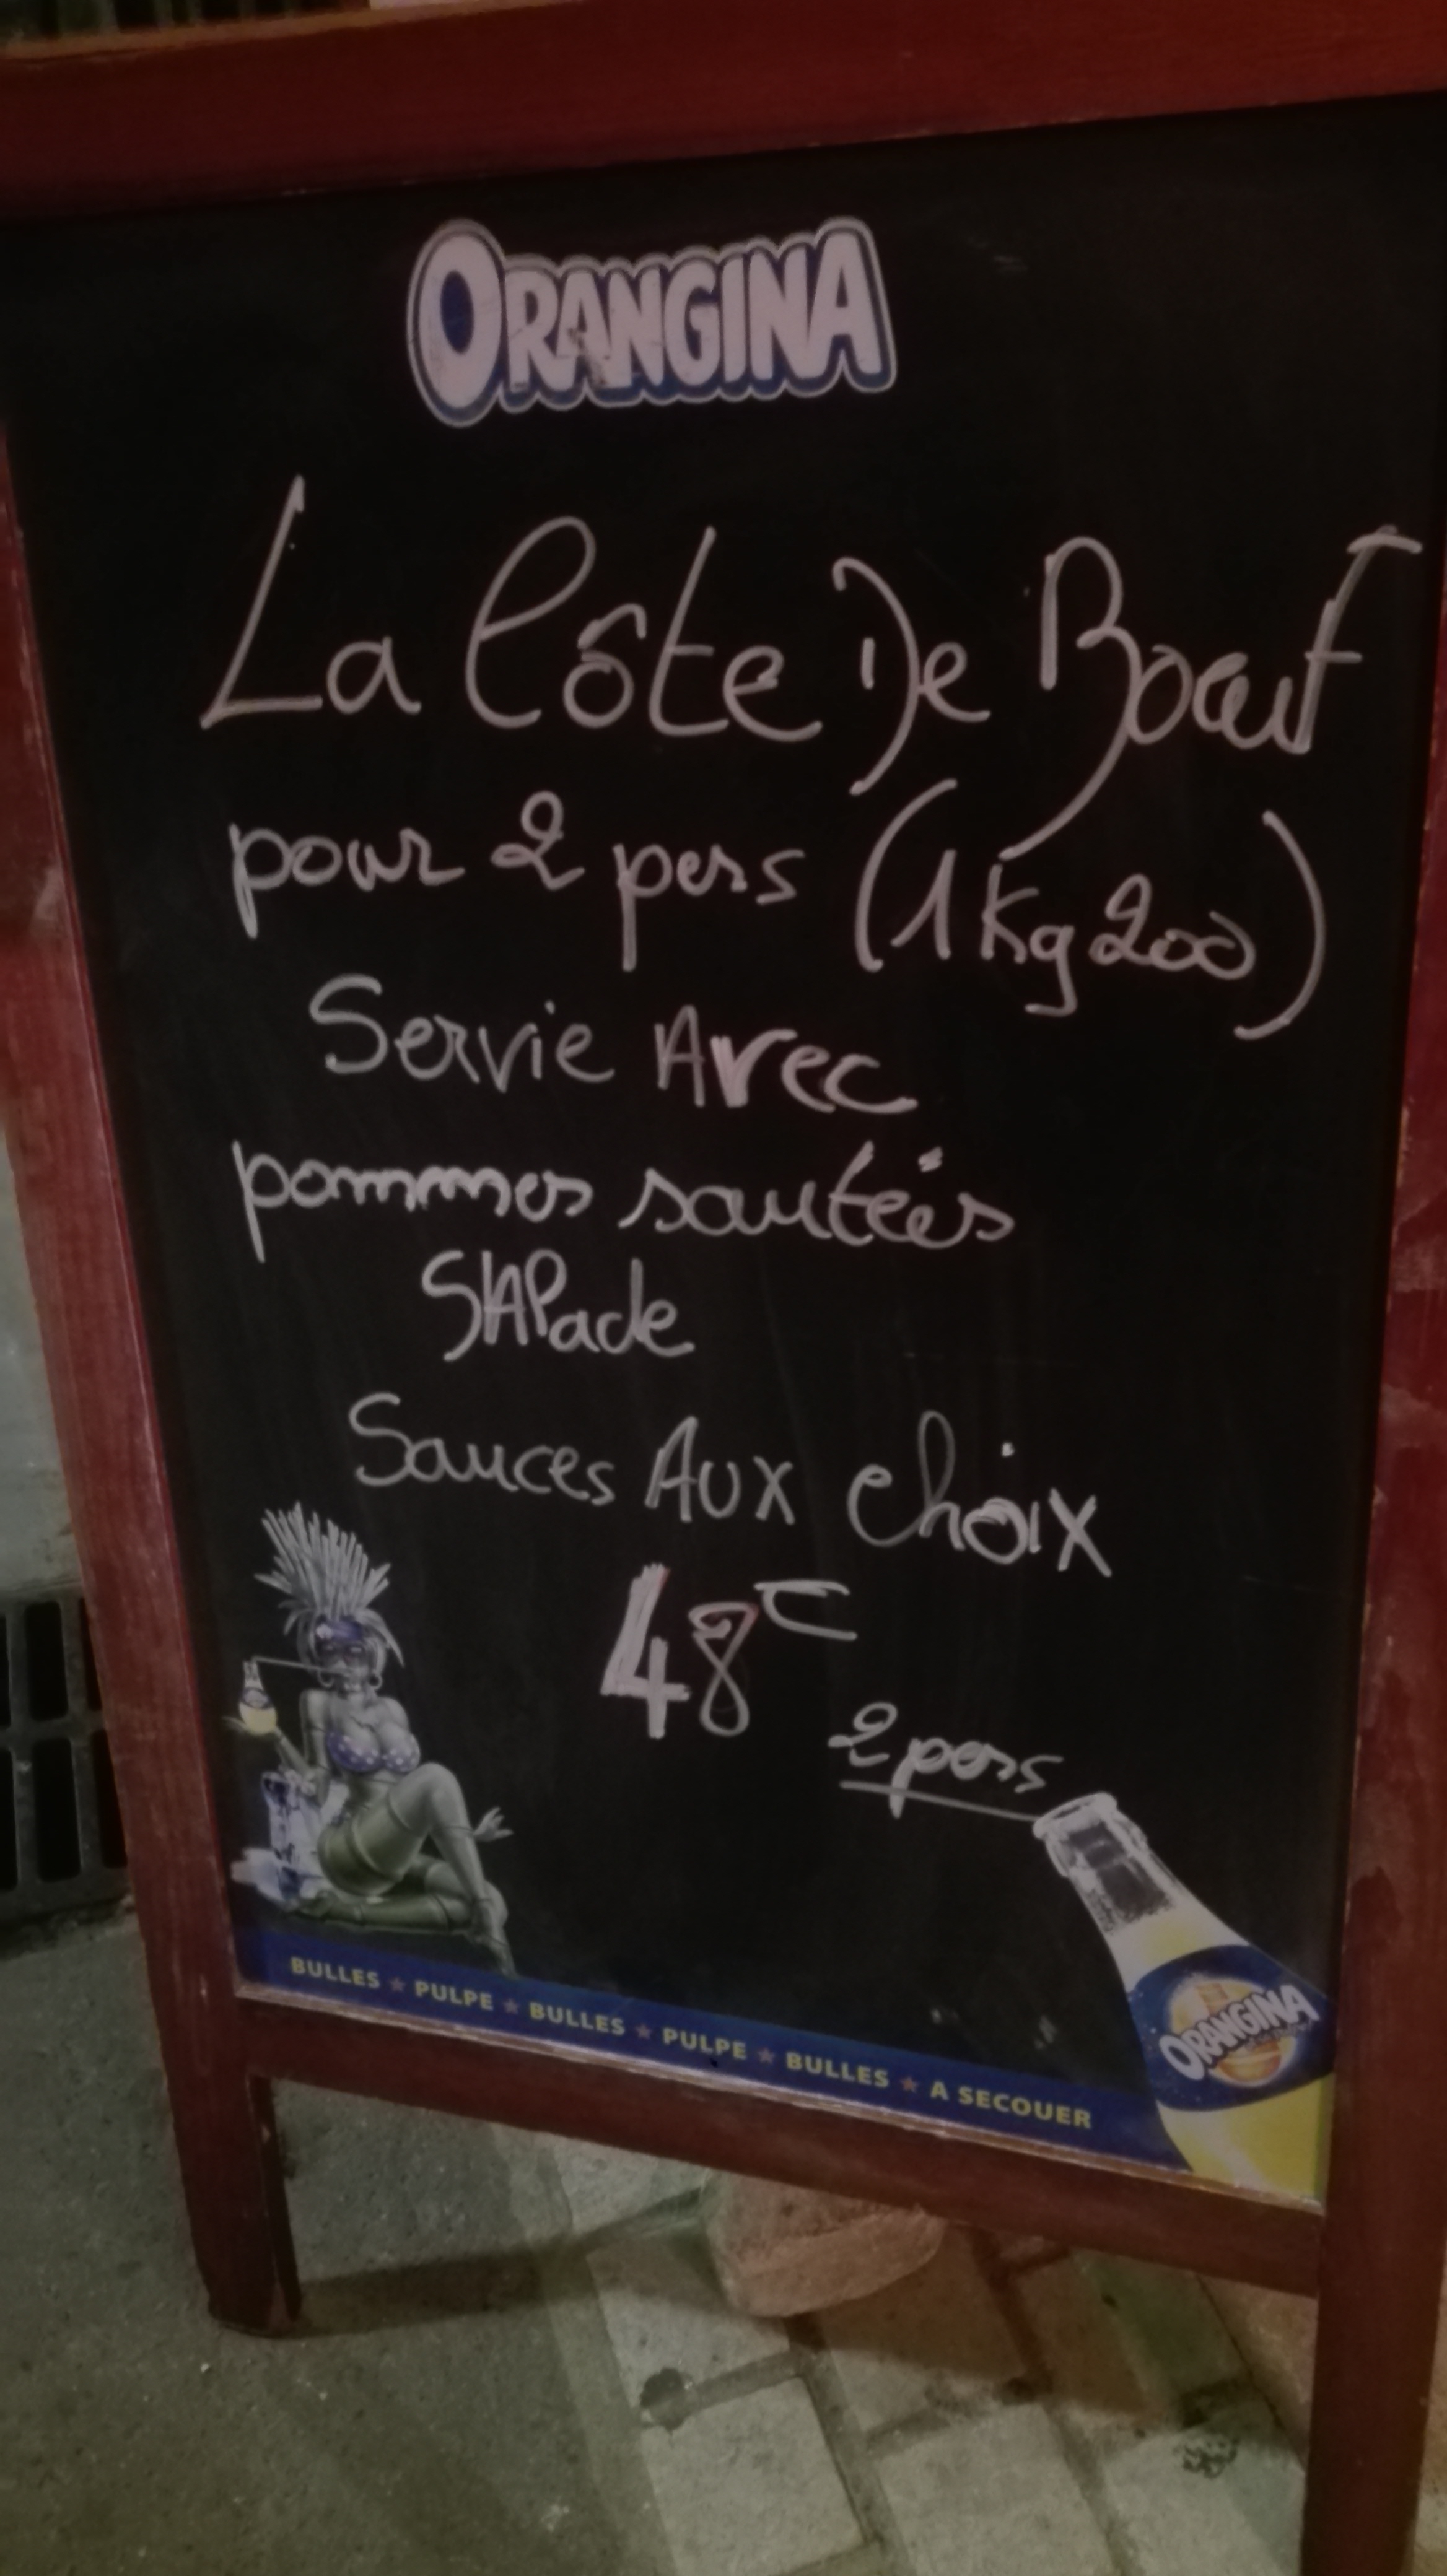 ORANGINA
La Côte De Bœuf
pour 2 pers (1Kg200)
Servie Avec
pommes sautées
SAlade
Sauces Aux choix
48€
2 pers
ORANGINA
BULLES ★ PULPE ★ BULLES ★ PULPE ★ BULLES ★ A SECOUER